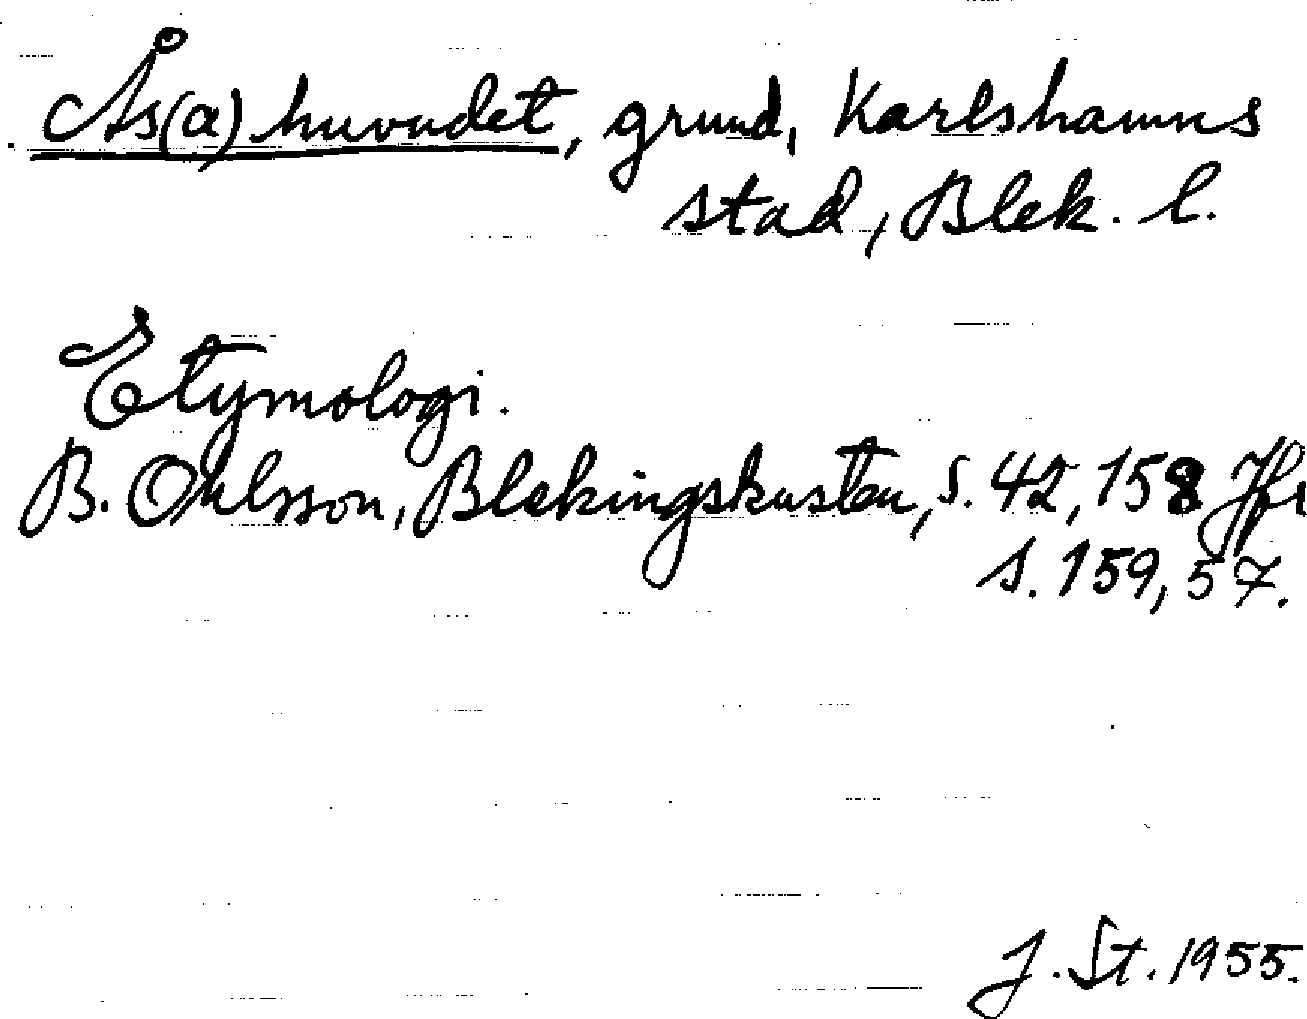 Ås(a)huvudet, grund, Karlshamns
stad, Blek. l.
Etymologi.
B. Ohlsson, Blekingskusten, s. 42, 158 Jfr
s. 159, 57.
J. St. 1955.